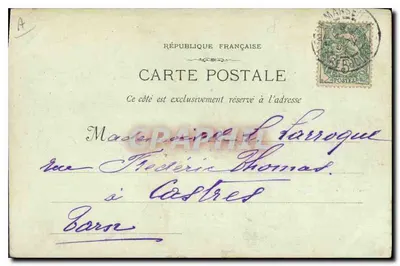 A
RÉPUBLIQUE FRANÇAISE
CARTE POSTALE
Ce côté est exclusivement réservé à l'adresse
M
L. Larroque
rue Frédéric Thomas
à
Castres
Tarn